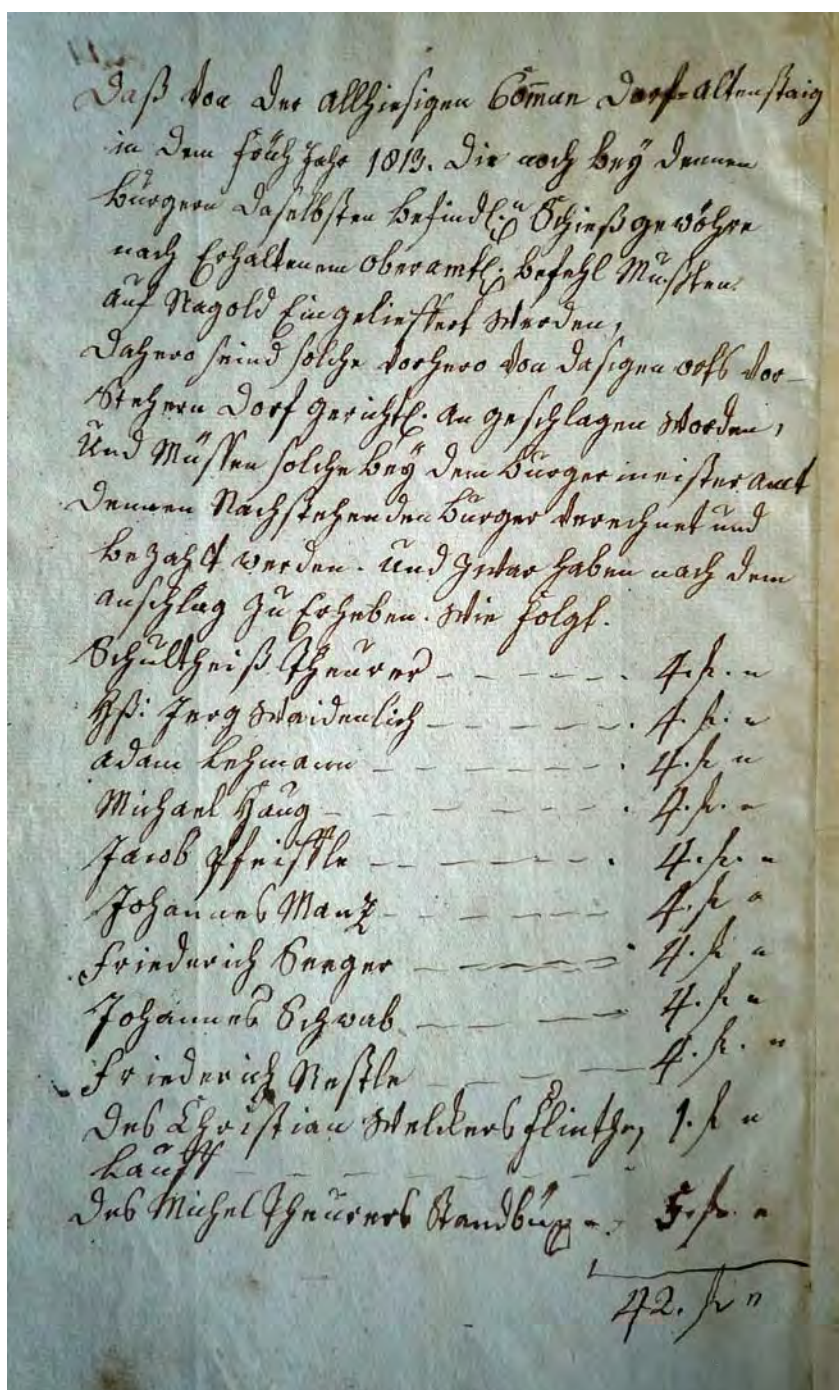 Daß von der allhiesigen Com̅un Dorf-Altenstaig
in dem früh Jahr 1813. die noch bey denen
burgern daselbsten befindl.n Schießgewöhre
nach Erhaltenem oberamtl. befehl Mußten
auf Nagold Eingelieffert werden,
dahero seind solche vorhero von dasigen orts Vor-
Stehern Dorf gerichtl. an geschlagen worden,
Und Müssen solche bey dem burgermeister amt
denen Nachstehenden burger verechnet und
bezahlt werden. und zwar haben nach dem
anschlag zu Erheben. wie folgt.
Schultheiß Theurer - - - - - . 4. f. "
Hß: Jerg Waidenlich - - - - - . 4. f. "
adam Lehmann - - - - - . 4. f. "
Michael Haug - - - - - . 4. f. "
Jacob Pfeiffle - - - - - . 4. f. "
Johannes Manz - - - - - 4. f. "
Friederich Seeger - - - - - 4. f. "
Johannes Schwab - - - - 4. f. "
Friederich Nestle - - - - 4. f. "
des Christian Welckers flinthen 1. f. "
Lauff - - - - - "
des Michel Theurers Standbüx - . 5. f. "
42. f. "